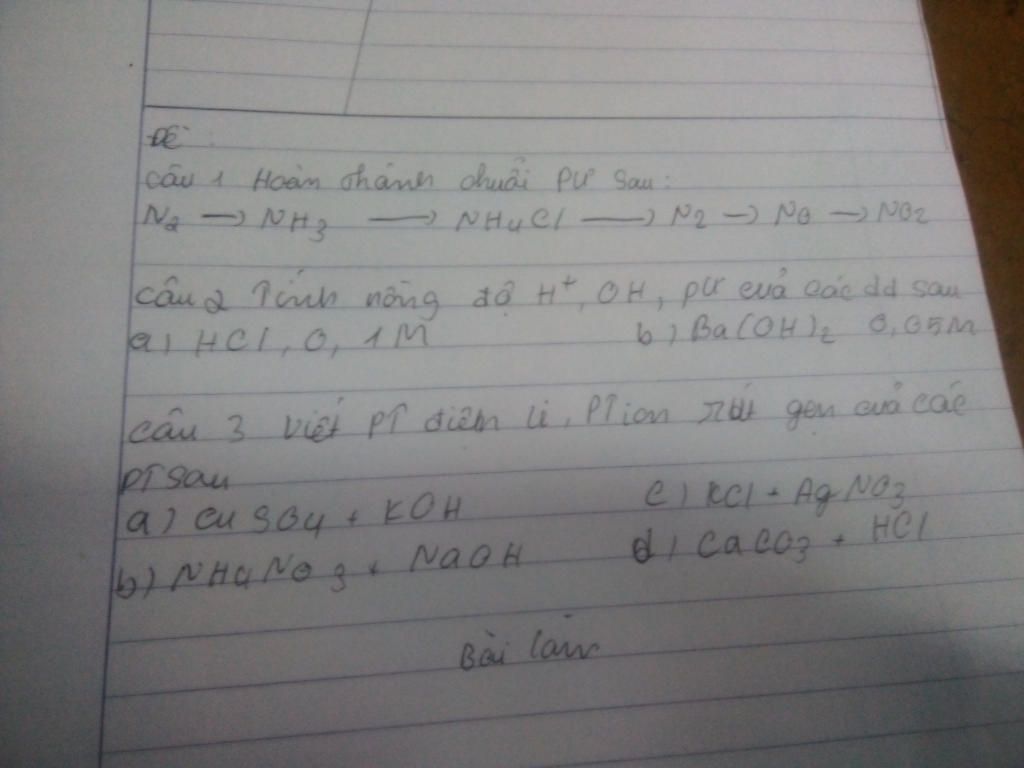 Đề:
Câu 1 Hoàn thành chuỗi PƯ sau:
N2 → NH3 → NH4Cl → N2 → NO → NO2
Câu 2 Tính nồng độ H+, OH, pư của các dd sau
a) HCl, 0,1M b) Ba(OH)2 0,05M
Câu 3 Viết PT điện li, PT ion rút gọn của các
PT sau
a) CuSO4 + KOH c) KCl + AgNO3
b) NH4NO3 + NaOH d) CaCO3 + HCl
Bài làm